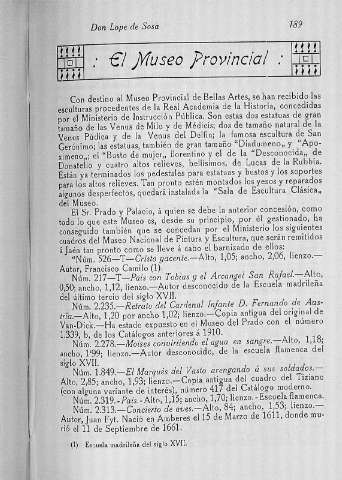 Don Lope de Sosa
189
: El Museo Provincial :
Con destino al Museo Provincial de Bellas Artes, se han recibido las
esculturas procedentes de la Real Academia de la Historia, concedidas
por el Ministerio de Instrucción Pública. Son estas dos estatuas de gran
tamaño de las Venus de Milo y de Médicis; dos de tamaño natural de la
Venus Púdica y de la Venus del Delfín; la famosa escultura de San
Gerónimo; las estatuas, también de gran tamaño "Diadumeno„ y "Apo-
ximeno„; el "Busto de mujer„ florentino y el de la "Desconocida„ de
Donatello y cuatro altos relieves, bellísimos, de Lucas de la Rubbia.
Están ya terminados los pedestales para estatuas y bustos y los soportes
para los altos relieves. Tan pronto estén montados los yesos y reparados
algunos desperfectos, quedará instalada la "Sala de Escultura Clásica„
del Museo.
El Sr. Prado y Palacio, á quien se debe la anterior concesión, como
todo lo que este Museo es, desde su principio, por él gestionado, ha
conseguido también que se concedan por el Ministerio los siguientes
cuadros del Museo Nacional de Pictura y Escultura, que serán remitidos
á Jaén tan pronto como se lleve á cabo el barnizado de ellos:
"Núm. 526—T—Cristo yacente.—Alto, 1,05; ancho, 2,06, lienzo.—
Autor, Francisco Camilo (1).
Núm. 217—T—País con Tobías y el Arcangel San Rafael.—Alto,
0,50; ancho, 1,12, lienzo.—Autor desconocido de la Escuela madrileña
del último tercio del siglo XVII.
Núm. 2.235.—Retrato del Cardenal Infante D. Fernando de Aus-
tria.—Alto, 1,20 por ancho 1,02; lienzo.—Copia antigua del original de
Van-Dick.—Ha estado expuesto en el Museo del Prado con el número
1.339, b, de los Catálogos anteriores á 1910.
Núm. 2.278.—Moises convirtiendo el agua en sangre.—Alto, 1,18;
ancho, 1'99; lienzo.—Actor desconocido, de la escuela flamenca del
siglo XVII.
Núm. 1.849.—El Marqués del Vasto arengando á sus soldados.—
Alto, 2,85; ancho, 1,93; lienzo.—Copia antigua del cuadro del Tiziano
(con alguna variante de interés), número 417 del Catálogo moderno.
Núm. 2.319.-País.-Alto, 1,15; ancho, 1,70; lienzo.-Escuela flamenca.
Núm. 2.313.—Concierto de aves.—Alto, 84; ancho, 1.53; lienzo.—
Autor, Juan Fyt. Nació en Amberes el 15 de Marzo de 1611, donde mu-
rió el 11 de Septiembre de 1661.
(1) Escuela madrileña del siglo XVII.